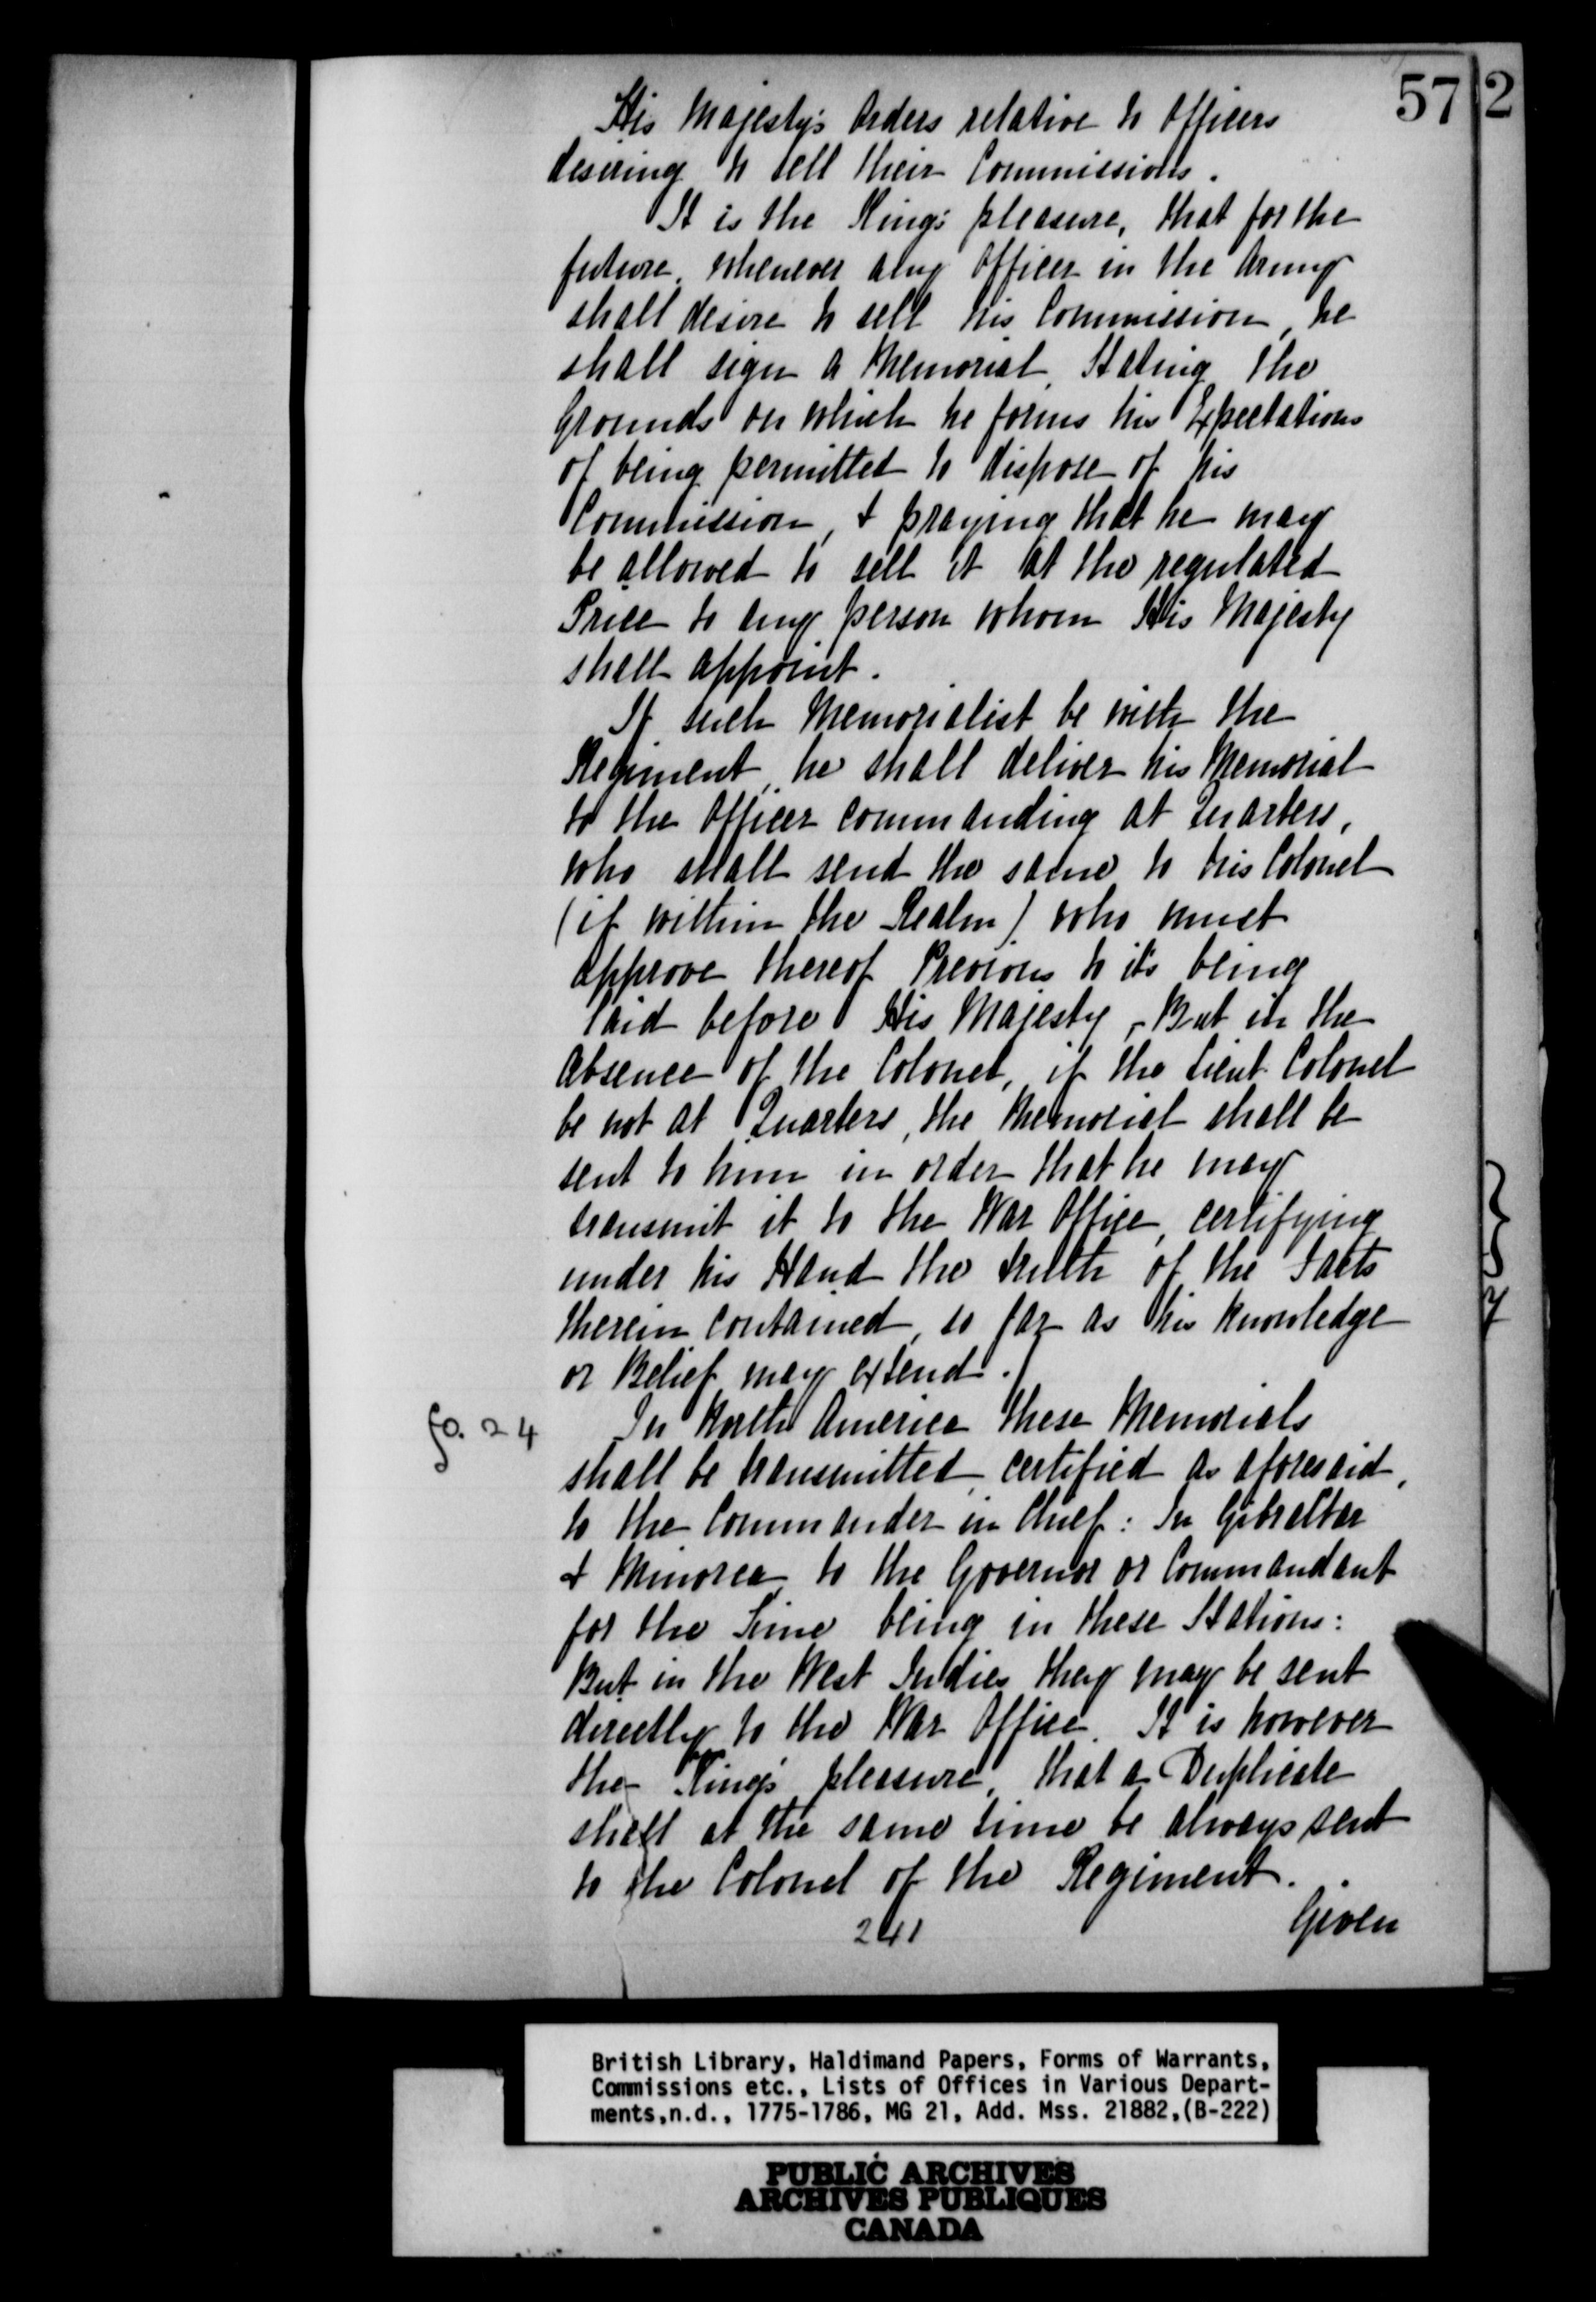 57
2
His Majesty's Orders relative to Officers
desiring to sell their Commissions.
It is the King's pleasure, that for the
future, whenever any Officer in the Army
shall desire to sell his Commission, he
shall sign a Memorial, Stating the
Grounds on which he forms his Expectations
of being permitted to dispose of his
Commission, & praying that he may
be allowed to sell it at the regulated
Price to any person whom His Majesty
shall appoint.
If such Memorialist be with the
Regiment, he shall deliver his Memorial
to the Officer commanding at Quarters,
who shall send the same to his Colonel
(if within the Realm) who must
approve thereof Previous to it's being
laid before His Majesty, - But in the
absence of the Colonel, if the Lieut. Colonel
be not at Quarters, the Memorial shall be
sent to him in order that he may
transmit it to the War Office, certifying
under his Hand the truth of the Facts
therein contained, so far as his knowledge
or Belief may extend.
fo. 24
In North America these Memorials
shall be transmitted, certified as aforesaid,
to the Commander in Chief: In Gibraltar
& Minorca to the Governor or Commandant
for the Time being in these Stations:
But in the West Indies they may be sent
directly to the War Office. It is however
the King's pleasure, that a Duplicate
shall at the same time be always sent
to the Colonel of the Regiment.
241
Given
British Library, Haldimand Papers, Forms of Warrants,
Commissions etc., Lists of Offices in Various Depart-
ments,n.d., 1775-1786, MG 21, Add. Mss. 21882,(B-222)
PUBLIC ARCHIVES
ARCHIVES PUBLIQUES
CANADA